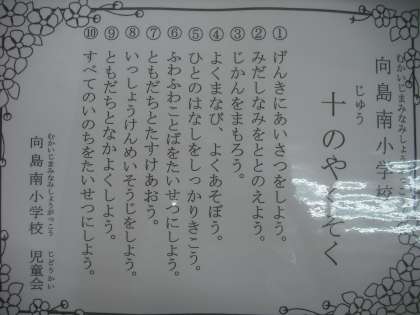 むかいじまみなみしょうがっこう
向島南小学校
じゅう
十のやくそく
① げんきにあいさつをしよう。
② みだしなみをととのえよう。
③ じかんをまもろう。
④ よくまなび、よくあそぼう。
⑤ ひとのはなしをしっかりきこう。
⑥ ふわふわことばをたいせつにしよう。
⑦ ともだちとたすけあおう。
⑧ いっしょうけんめいそうじをしよう。
⑨ ともだちとなかよくしよう。
⑩ すべてのいのちをたいせつにしよう。
むかいじまみなみしょうがっこう じどうかい
向島南小学校 児童会